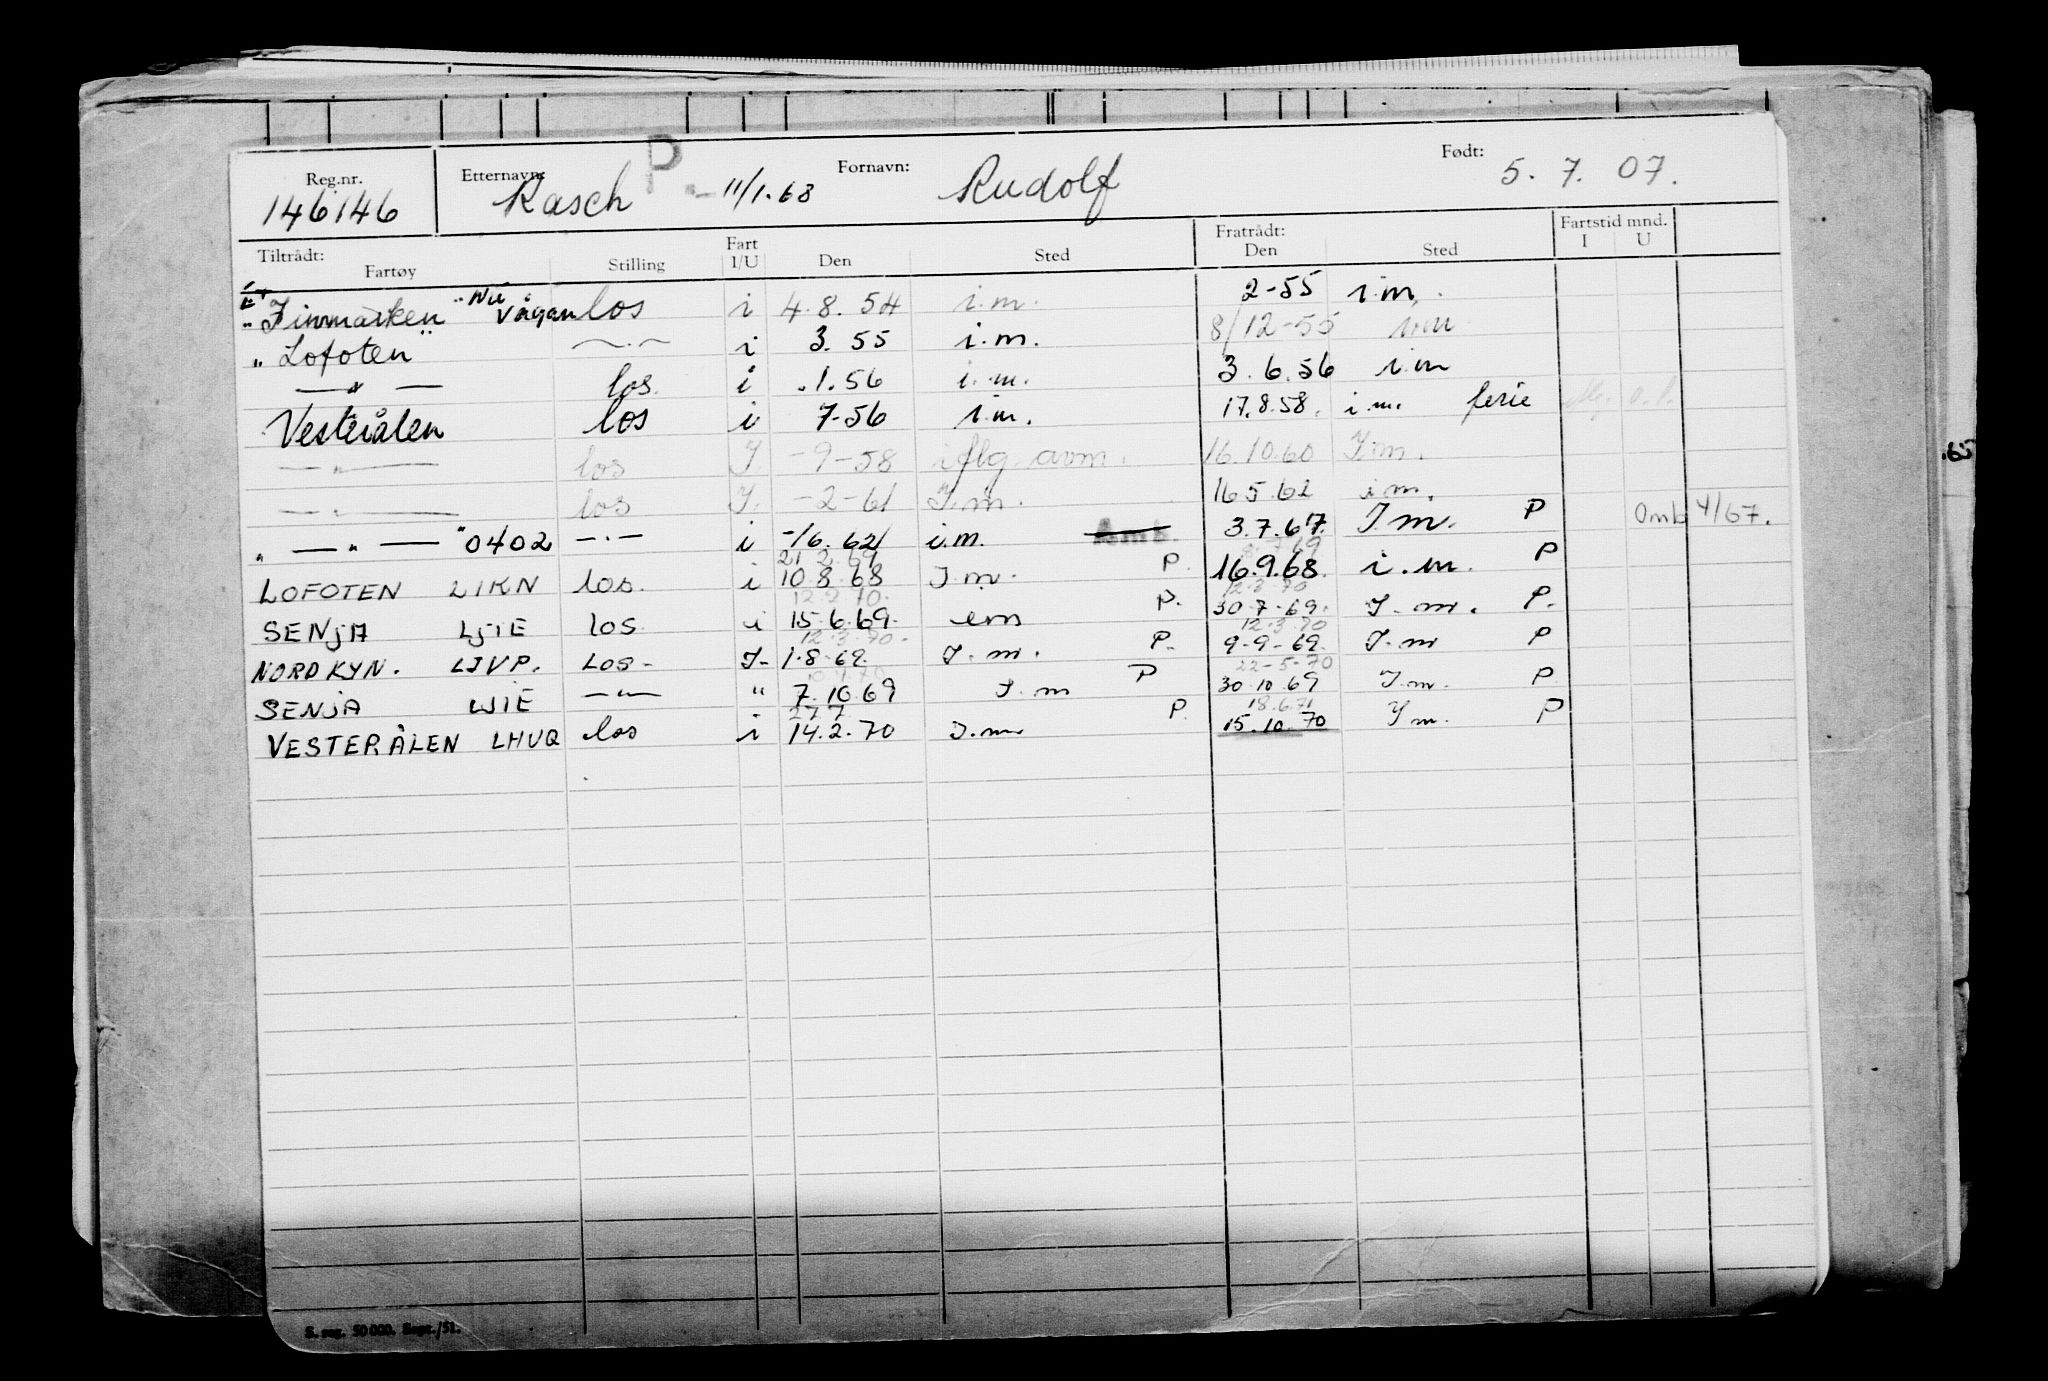 Reg.nr. Etternavn: P. Fornavn: Født:
146146 Rasch - 11/1.68 Rudolf 5. 7. 07.
Tiltrådt: Fart Fratrådt: Fartstid mnd.
Fartøy Stilling I/U Den Sted Den Sted I U
"Finmarken" Nu Vågan los i 4.8.54 i.m. 2-55 i.m.
"Lofoten" —.— i 3.55 i.m. 8/12-55 i.m.
— " — los. i .1.56 i.m. 3.6.56 i.m
Vesterålen los i 7-56 i.m. 17.8.58. i.m. ferie
— " — los I. -9-58 iflg. avm. 16.10.60 I.m.
— " — los I. -2-61 I.m. 16 5.62 i.m.
" — " — " 0402 —.— i -/6.62 i.m. 3.7.67. I m. P Omb 4/67.
21 2 69
LOFOTEN LIKN los. i 10 8.68 I m. P. 16.9.68. i.m. P
12.2.70. 12.3.70
SENJA LJIE los. i 15.6.69. em P. 30-7-69. I.m. P.
12.3.70. 12.3.70
NORDKYN. LJVP. Los- I- 1.8.69. I.m. P. 9-9-69. I.m P
22-5-70
SENJA LJIE —"— " 7.10.69 I.m P 30.10.69 I.m. P
27 7 18.6.71
VESTERÅLEN LHUQ los i 14.2.70 I.m P. 15.10.70 I m. P
S. reg. 50 000. Sept./51.
.65